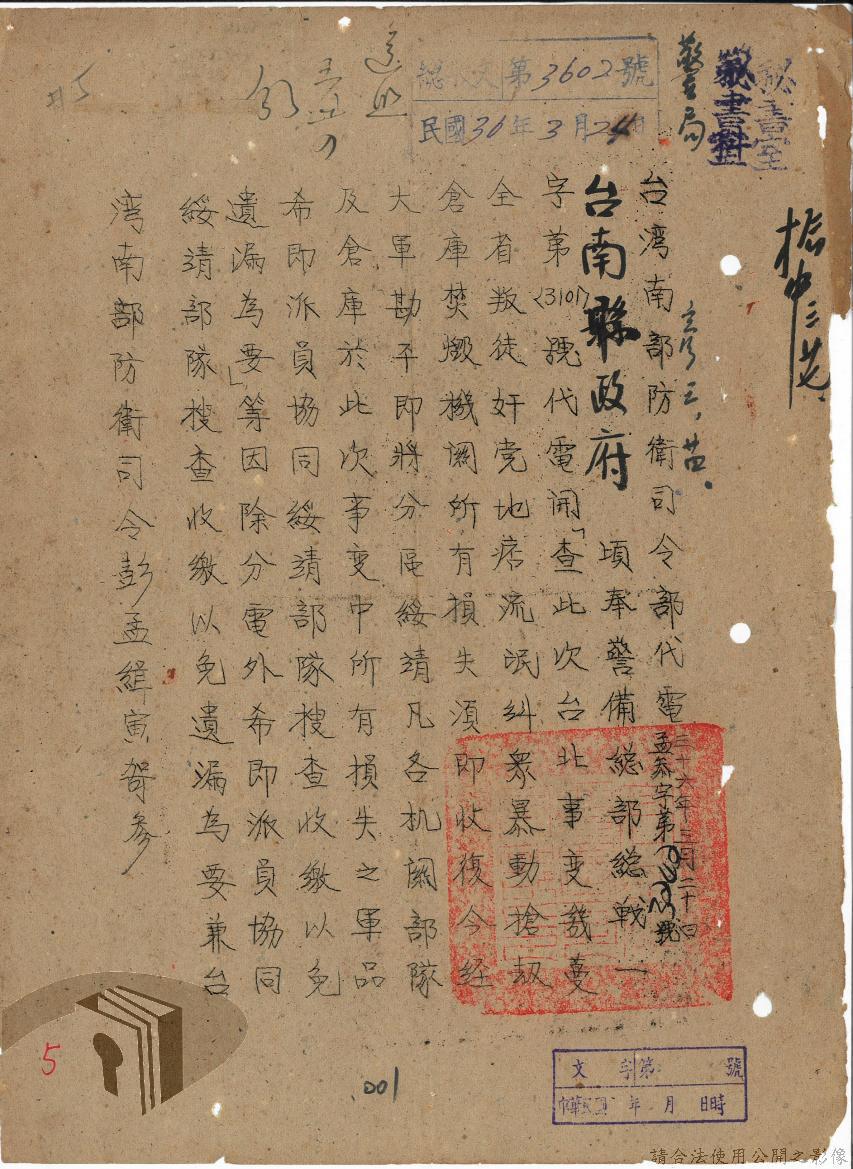 秘書室
警局
總收文第3602號
民國36年3月24日
台湾南部防衛司令部代電
三十六年三月二十日
孟參字第
號
台南縣政府
頃奉警備總部總戰一
字第(3101)號代電開「查此次台北事変幾蔓
全省叛徒奸党地痞流氓糾衆暴動搶刼
倉庫焚燬機関所有損失須即收復今経
大軍勘平即將分區綏靖凡各机関部隊
及倉庫於此次事変中所有損失之軍品
希即派員協同綏靖部隊搜查收繳以免
遺漏為要」等因除分電外希即派員協同
綏靖部隊搜查收繳以免遺漏為要兼台
湾南部防衛司令彭孟緝寅哿參
文 字第 號
中華民國 年 月 日時
5
001
請合法使用公開之影像